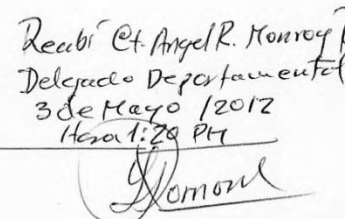 Recibí Ct. Angel R. Monroy
Delegado Departamental
3 de Mayo /2012
Hora 1:20 PM